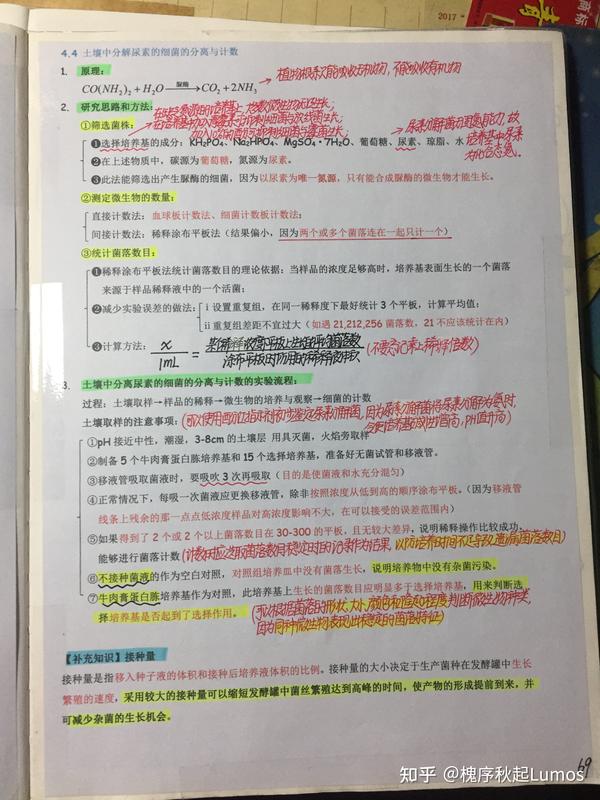 2017
商标
4.4 土壤中分解尿素的细菌的分离与计数
1. 原理：
CO(NH₂)₂+H₂O 脲酶→ CO₂+2NH₃
植物根系只能吸收无机物，不能吸收有机物
2. 研究思路和方法：
①筛选菌株：
❶选择培养基的成分：KH₂PO₄、Na₂HPO₄、MgSO₄·7H₂O、葡萄糖、尿素、琼脂、水
❷在上述物质中，碳源为葡萄糖，氮源为尿素。
❸此法能筛选出产生脲酶的细菌，因为以尿素为唯一氮源，只有能合成脲酶的微生物才能生长。
②测定微生物的数量：
直接计数法：血球板计数法、细菌计数板计数法；
间接计数法：稀释涂布平板法（结果偏小，因为两个或多个菌落连在一起只计一个）
③统计菌落数目：
❶稀释涂布平板法统计菌落数目的理论依据：当样品的浓度足够高时，培养基表面生长的一个菌落
来源于样品稀释液中的一个活菌；
❷减少实验误差的做法：ⅰ设置重复组，在同一稀释度下最好统计 3 个平板，计算平均值；
ⅱ重复组差距不宜过大（如遇 21,212,256 菌落数，21 不应该统计在内）
❸计算方法：x/1mL =
(不要忘记乘上稀释倍数)
3. 土壤中分离尿素的细菌的分离与计数的实验流程：
过程：土壤取样→样品的稀释→微生物的培养与观察→细菌的计数
土壤取样的注意事项：
①pH 接近中性，潮湿，3-8cm 的土壤层 用具灭菌，火焰旁取样
②制备 5 个牛肉膏蛋白胨培养基和 15 个选择培养基，准备好无菌试管和移液管。
③移液管吸取菌液时，要吸吹 3 次再吸取（目的是使菌液和水充分混匀）
④正常情况下，每吸一次菌液应更换移液管，除非按照浓度从低到高的顺序涂布平板。（因为移液管
线条上残余的那一点点低浓度样品对高浓度影响不大，在可以接受的误差范围内）
⑤如果得到了 2 个或 2 个以上菌落数目在 30-300 的平板，且无较大差异，说明稀释操作比较成功，
能够进行菌落计数
⑥不接种菌液的作为空白对照，对照组培养皿中没有菌落生长，说明培养物中没有杂菌污染。
⑦牛肉膏蛋白胨培养基作为对照，此培养基上生长的菌落数目应明显多于选择培养基，用来判断选
择培养基是否起到了选择作用。
(可以根据菌落的形状,大小,颜色和隆起程度判断微生物种类,
因为同种微生物表现出稳定的菌落特征)
【补充知识】接种量
接种量是指移入种子液的体积和接种后培养液体积的比例。接种量的大小决定于生产菌种在发酵罐中生长
繁殖的速度，采用较大的接种量可以缩短发酵罐中菌丝繁殖达到高峰的时间，使产物的形成提前到来，并
可减少杂菌的生长机会。
69
知乎 @槐序秋起Lumos